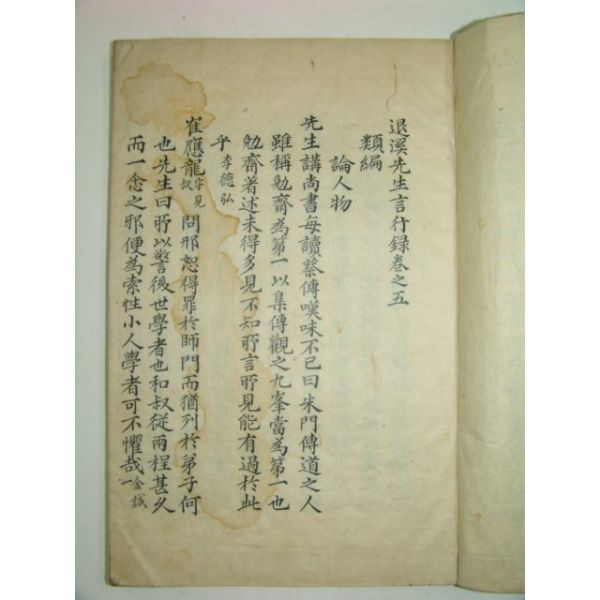 退溪先生言行録巻之五
類編
論人物
先生講尚書每讀蔡傳嘆味不已曰朱門傳道之人
雖稱勉齋為第一以集傳觀之九峯當為第一也
勉齋著述未得多見不知所言所見能有過於此
乎李德弘
崔應龍字見叔問邢恕得罪於師門而猶列於弟子何
也先生曰所以警後世學者也和叔從兩程甚久
而一念之邪便為索性小人學者可不懼哉金誠一